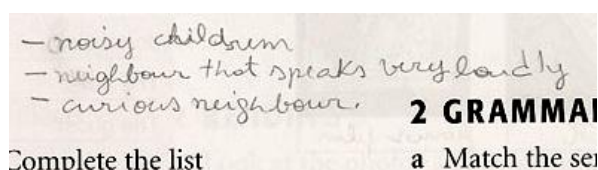 - noisy childrem
- neighbour that speaks very loudly
- curious neighbour.
2 GRAMMA
Complete the list
a Match the se